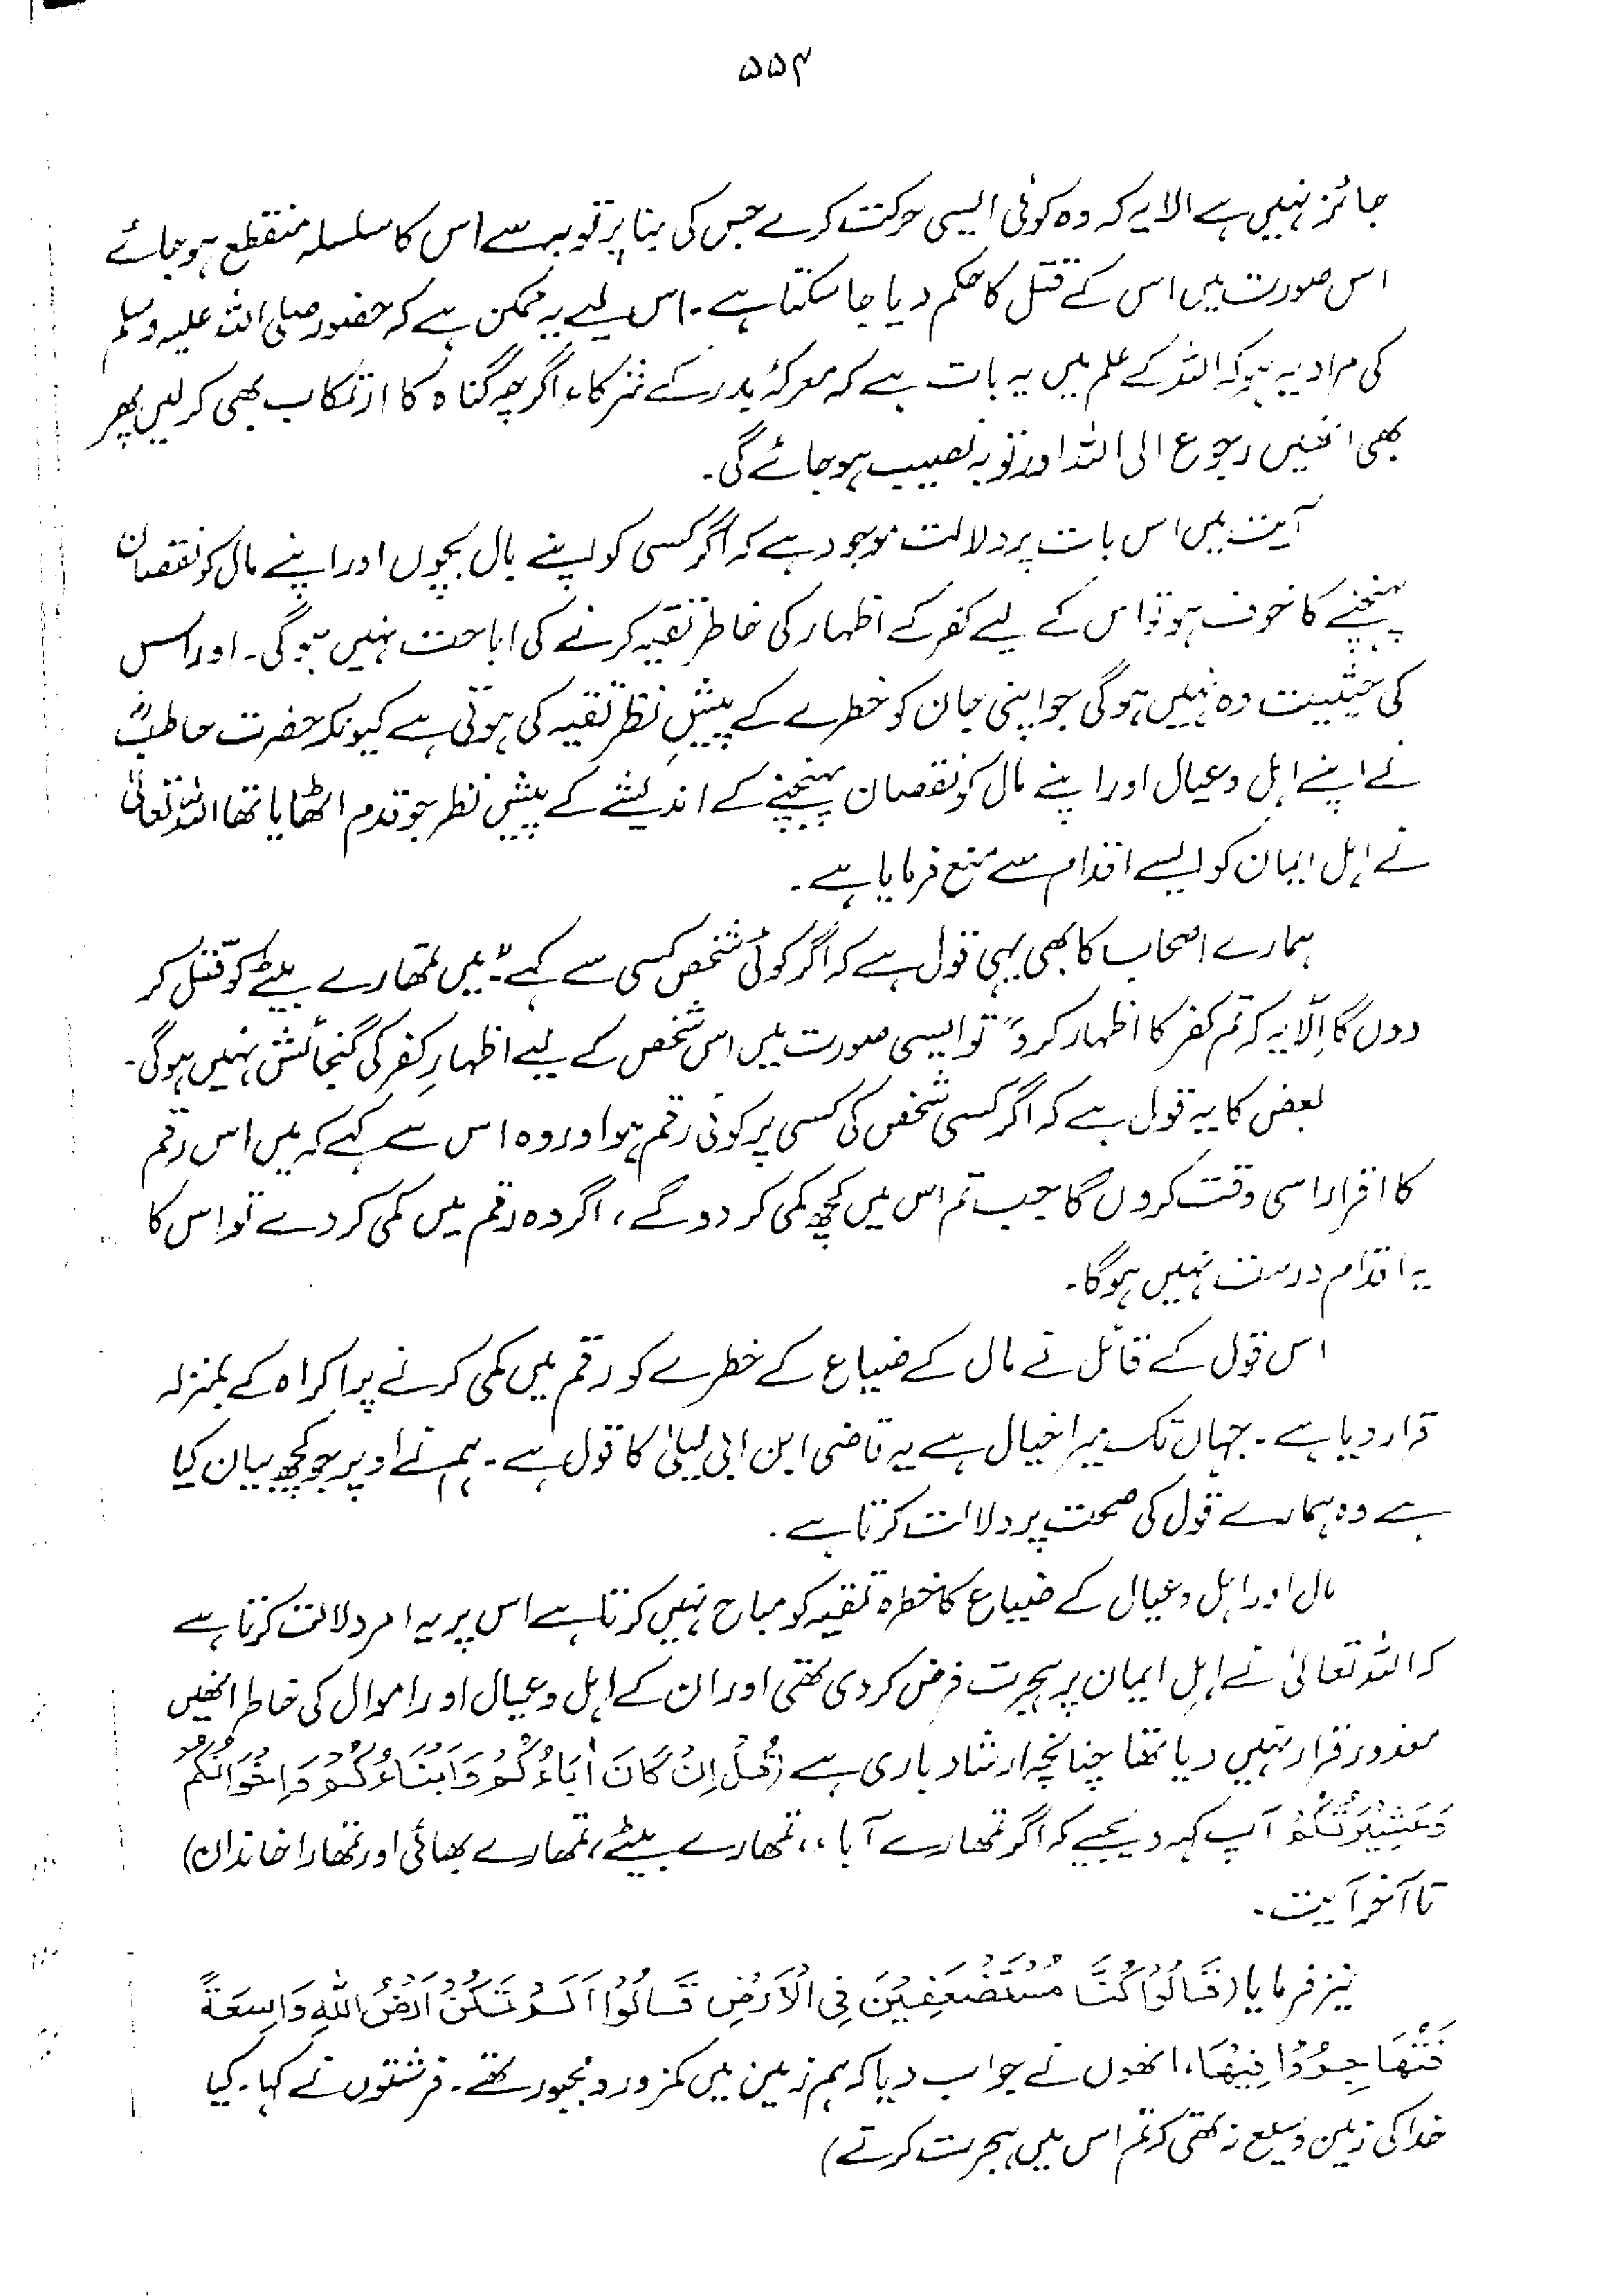 ۵۵۴
جائز نہیں ہے الا یہ کہ وہ کوئی ایسی حرکت کرے جس کی بنا پر توبہ سے اس کا سلسلہ منقطع ہو جائے
اس صورت میں اس کے قتل کا حکم دیا جا سکتا ہے۔ اس لیے یہ ممکن ہے کہ حضور صلی اللہ علیہ وسلم
کی مراد یہ ہو کہ اللہ کے علم میں یہ بات ہے کہ معرکۂ بدر کے شرکاء اگرچہ گناہ کا ارتکاب بھی کر لیں پھر
بھی انھیں رجوع الی اللہ اور توبہ نصیب ہو جائے گی۔
آیت میں اس بات پر دلالت موجود ہے کہ اگر کسی کو اپنے بال بچوں اور اپنے مال کو نقصان
پہنچنے کا خوف ہو تو اس کے لیے کفر کے اظہار کی خاطر تقیہ کرنے کی اباحت نہیں ہوگی۔ اور اس
کی حیثیت وہ نہیں ہوگی جو اپنی جان کو خطرے کے پیشِ نظر تقیہ کی ہوتی ہے کیونکہ حضرت حاطبؓ
نے اپنے اہل و عیال اور اپنے مال کو نقصان پہنچنے کے اندیشے کے پیش نظر جو قدم اٹھایا تھا اللہ تعالیٰ
نے اہل ایمان کو ایسے اقدام سے منع فرمایا ہے۔
ہمارے اصحاب کا بھی یہی قول ہے کہ اگر کوئی شخص کسی سے کہے: "میں تمھارے بیٹے کو قتل کر
دوں گا اِلّا یہ کہ تم کفر کا اظہار کرو" تو ایسی صورت میں اس شخص کے لیے اظہارِ کفر کی گنجائش نہیں ہوگی۔
بعض کا یہ قول ہے کہ اگر کسی شخص کی کسی پر کوئی رقم ہو اور وہ اس سے کہے کہ میں اس رقم
کا اقرار اسی وقت کروں گا جب تم اس میں کچھ کمی کر دو گے، اگر وہ رقم میں کمی کر دے تو اس کا
یہ اقدام درست نہیں ہوگا۔
اس قول کے قائل نے مال کے ضیاع کے خطرے کو رقم میں کمی کرنے پر اکراہ کے بمنزلہ
قرار دیا ہے۔ جہاں تک میرا خیال ہے یہ قاضی ابن ابی لیلیٰ کا قول ہے۔ ہم نے اوپر جو کچھ بیان کیا
ہے وہ ہمارے قول کی صحت پر دلالت کرتا ہے۔
مال اور اہل و عیال کے ضیاع کا خطرہ تقیہ کو مباح نہیں کرتا ہے اس پر یہ امر دلالت کرتا ہے
کہ اللہ تعالیٰ نے اہلِ ایمان پر ہجرت فرض کر دی تھی اور ان کے اہل و عیال اور اموال کی خاطر انھیں
معذور قرار نہیں دیا تھا چنانچہ ارشاد باری ہے (قُلْ اِنْ كَانَ اٰبَاءُكُمْ وَاَبْنَاءُكُمْ وَاِخْوَانُكُمْ
وَعَشِيْرَتُكُمْ آپ کہہ دیجیے کہ اگر تمھارے آباء، تمھارے بیٹے، تمھارے بھائی اور تمھارا خاندان)
تا آخر آیت۔
نیز فرمایا (قَالُوْا كُنَّا مُسْتَضْعَفِيْنَ فِى الْاَرْضِ قَالُوْا اَلَمْ تَكُنْ اَرْضُ اللّٰهِ وَاسِعَةً
فَتُهَاجِرُوْا فِيْهَا، انھوں نے جواب دیا کہ ہم زمین میں کمزور و مجبور تھے۔ فرشتوں نے کہا۔ کیا
خدا کی زمین وسیع نہ تھی کہ تم اس میں ہجرت کرتے)